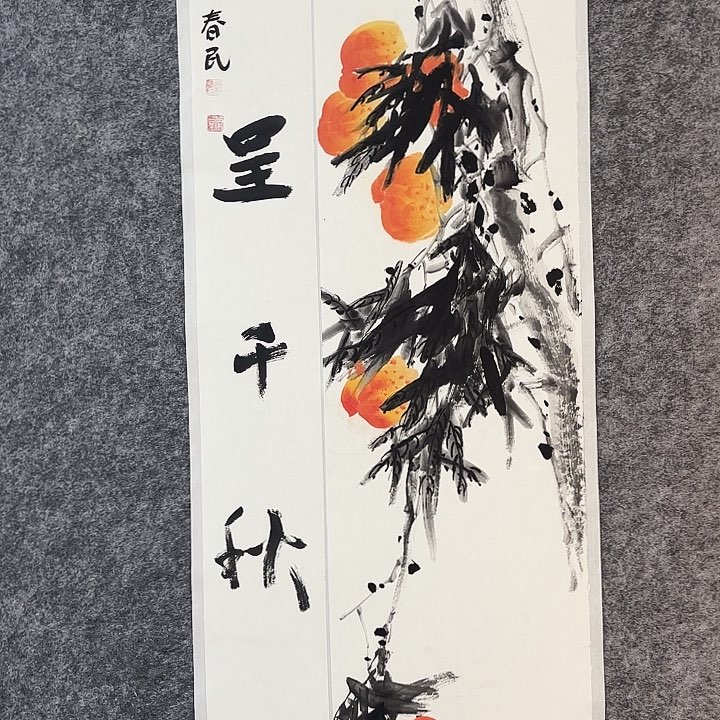 春民
呈千秋